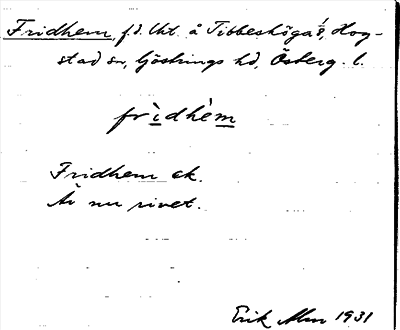 Fridhem, f.d. lht. å Tibbeshöga 1/8, Hog-
stad sn, Göstrings hd, Östberg. l.
frìdhèm
Fridhem ek.
Är nu rivet.
Erik Alm 1931